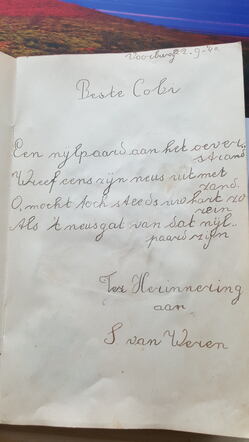 Voorburg 22.9.'40
Beste Cobi
Een nylpaard aan het oever-
strand
Wreef eens zijn neus uit met
zand.
O, mocht toch steeds uw hart zo
rein
Als 't neusgat van dat nijl-
paard zijn
Ter Herinnering
aan
S van Weren